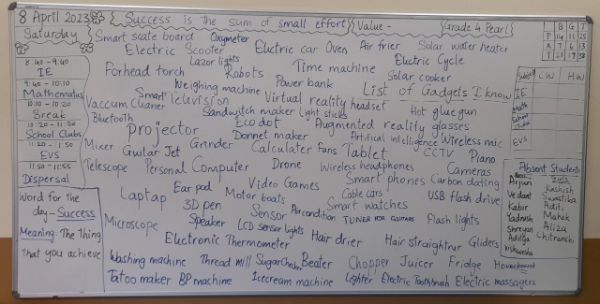 8 April 2023
Saturday
Success is the sum of small effort
Value -
Grade 4 Pearl
B G T
P 14 11 25
A 7 6 13
T 21 17 38
8:40 - 9:40
IE
9:40 - 10:10
Mathematics
10:10 - 10:20
Break
10:20 - 11:20
School Clubs
11:20 - 11:50
EVS
11:50 - 11:55
Dispersal
Word for the
day - Success
Meaning: The thing
that you achieve
Smart scate board Oxymeter
Electric Scooter Electric car Oven Air frier Solar water heater
Lazor lights Electric Cycle
Forhead torch Robots Time machine Solar cooker
Weighing machine Power bank List of Gadgets I know
Smart Television Virtual reality headset
Vaccum Claner Sandwitch maker Light sticks Hot glue gun
Bluetooth Eco dot Augmented reality glasses
Projector Donnet maker Artificial intelligence Wireless mic
Mixer Guitar Jet Grinder Calculater Fans Tablet CCTV Piano
Telescope Personal Computer Drone Wireless headphones Cameras
Smart phones Carbon dating
Laptap Ear pod Video Games Cable cars USB flash drive
3D pen Motor boats Smart watches
Microscope Speaker Sensor Aircondition TUNER FOR GUITARS Flash lights
LCD sensor lights
Electronic Thermometer Hair drier Hair straightnur Gliders
Washing machine Thread mill Sugar Checker Beater Chopper Juicer Fridge
Tatoo maker BP machine Icecream machine Lighter Electric Toothbrush Electric massagers
Subject CW HW
IE
Math
School Clubs
EVS
Absent Students
Boys Girls
Arjun Kashish
Vedant Swastika
Kabir Aditi
Yadnesh Mahek
Shreyan Aliza
Aditya Chitranshi